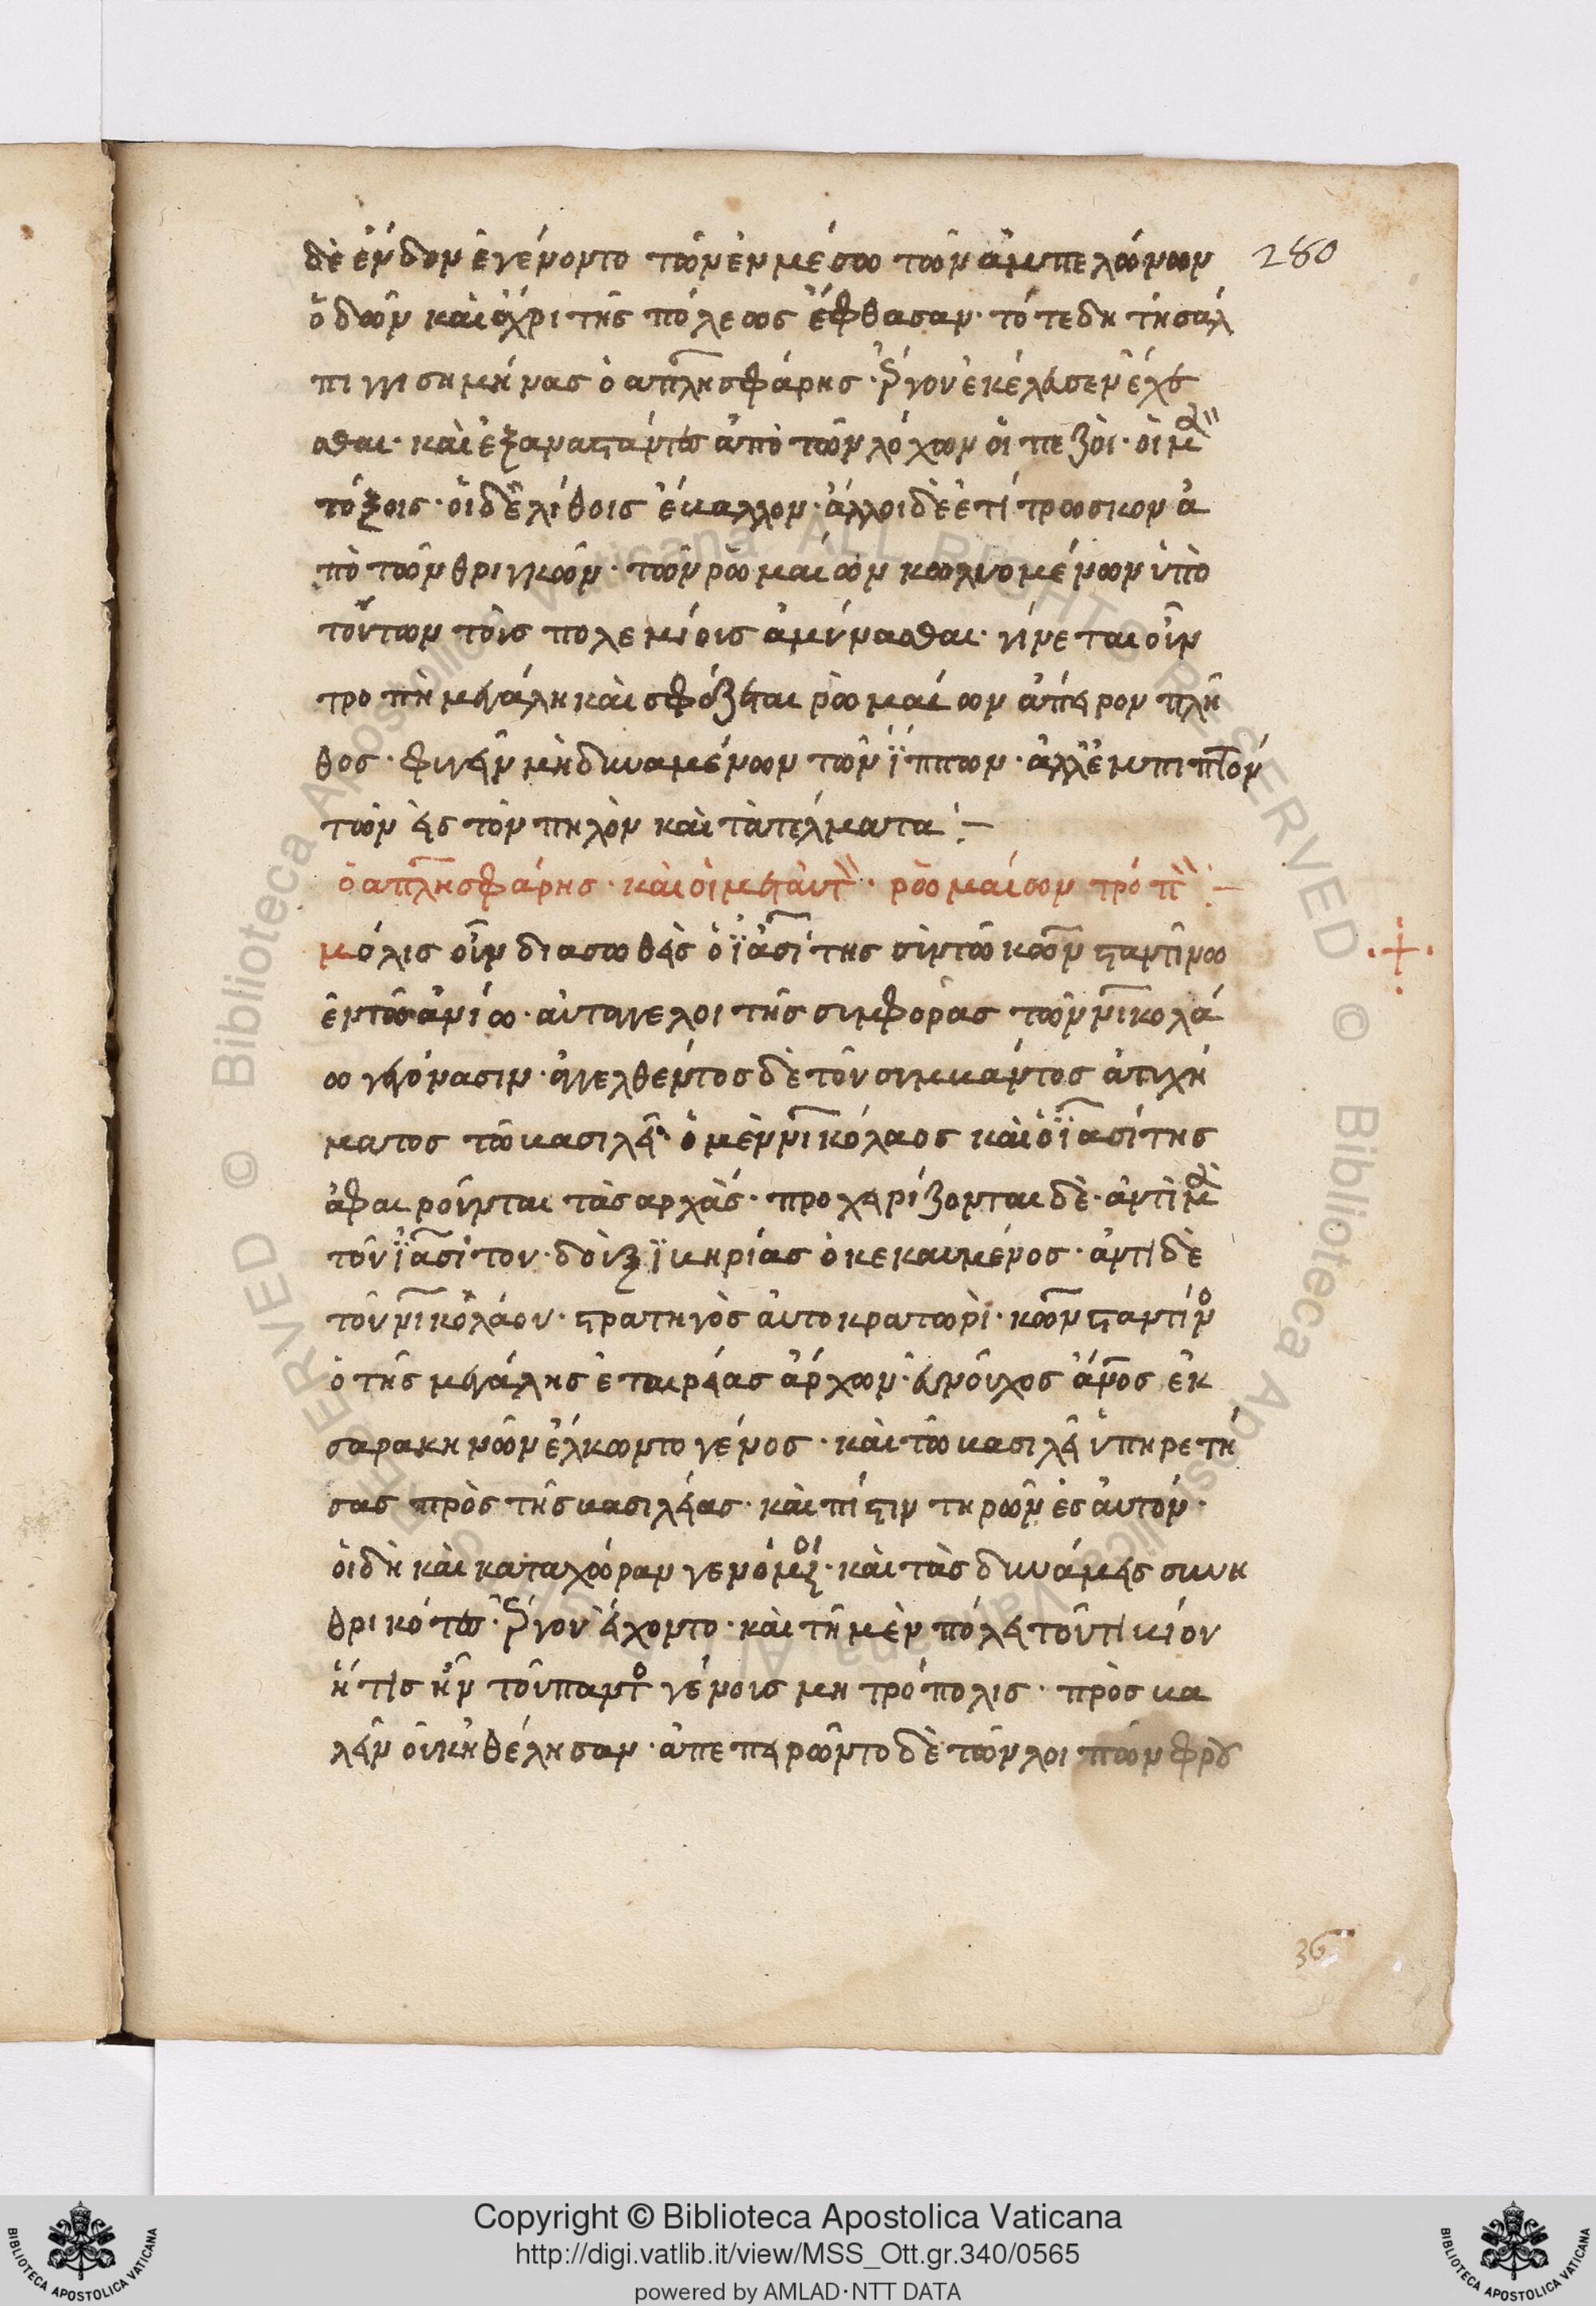 δὲ ἔνδον ἐγένοντο τῶν ἐν μέσω τῶν ἀμπελώνων 280
ὁδῶν καὶ ἄχρι τῆς πόλεως ἔφθασαν· τότε δὴ τῆ σάλ
πιγγι σημήνας ὁ απλησφάρης· ἔργου ἐκέλευσεν ἔχε
σθαι· καὶ ἐξαναστάντες ἀπὸ τῶν λόχων οἱ πεζοὶ· οἱ μὲν
τόξοις· οἱ δὲ λίθοις ἔβαλλον· ἄλλοι δὲ ἐτίτρωσκον ἀ
πὸ τῶν θριγκῶν· τῶν ρωμαίων κωλυομένων ὑπὸ
τούτων τοὺς πολεμίους ἀμύνασθαι· γίνεται οὖν
τροπὴ μεγάλη καὶ σφάζεται ρωμαίων ἄπειρον πλῆ
θος· φυγεῖν μὴ δυναμένων τῶν ἵππων· ἀλλ' ἐμπιπτόν
των εἰς τὸν πηλὸν καὶ τὰ τέλματα :–
ὁ απλησφάρης· καὶ οἱ μετ' αὐτοῦ· ρωμαίων τροπὴ :–
μόλις οὖν διασωθεὶς ὁ ἰασίτης σὺν τῶ κωνσταντίνω
ἐν τῶ ἀνίω· αὐτάγγελοι τῆς συμφορᾶς τῶ νικολά
ω γεγόνασιν· ἀγγελθέντος δὲ τοῦ συμβάντος ἀτυχή
ματος τῶ βασιλεῖ· ὁ μὲν νικόλαος καὶ ὁ ἰασίτης
ἀφαιροῦνται τὰς αρχάς· προχειρίζονται δὲ· ἀντὶ μὲν
τοῦ ἰασίτου· δοὺξ ϊβηρίας ὁ κεκαυμένος· ἀντὶ δὲ
τοῦ νικολάου· στρατηγὸς αὐτοκρατωρὶ· κωνσταντίνος
ὁ τῆς μεγάλης ἑταιρείας ἄρχων· εὐνοῦχος ἄνος ἐκ
σαρακηνῶν ἕλκωντο γένος· καὶ τῶ βασιλεῖ ὑπηρετή
σας πρὸς τῆς βασιλείας· καὶ πίστιν τηρῶν ἐς αὐτόν·
οἱ δὴ καὶ καταχώραν γενόμενοι· καὶ τὰς δυνάμεις συνη
θρικότες· ἔργου εἴχοντο· καὶ τῆ μὲν πόλει τοῦ τιβίου
ἥτις ἦν τοῦ παντὸς γένους μητρόπολις· πρὸς βα
λεῖν οὐκ ἠθέλησαν· ἀπεπειρῶντο δὲ τῶν λοιπῶν φρου
36
Copyright © Biblioteca Apostolica Vaticana
http://digi.vatlib.it/view/MSS_Ott.gr.340/0565
powered by AMLAD·NTT DATA